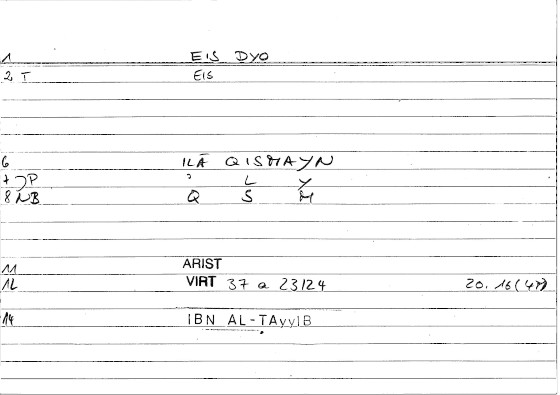 1 EIS DYO
2 T EIS
6 ILĀ QISMAYN
7 JP ' L Y
8 NB Q S M
11 ARIST
12 VIRT 37 a 23/24 20.16(47)
14 IBN AL-TAyyIB